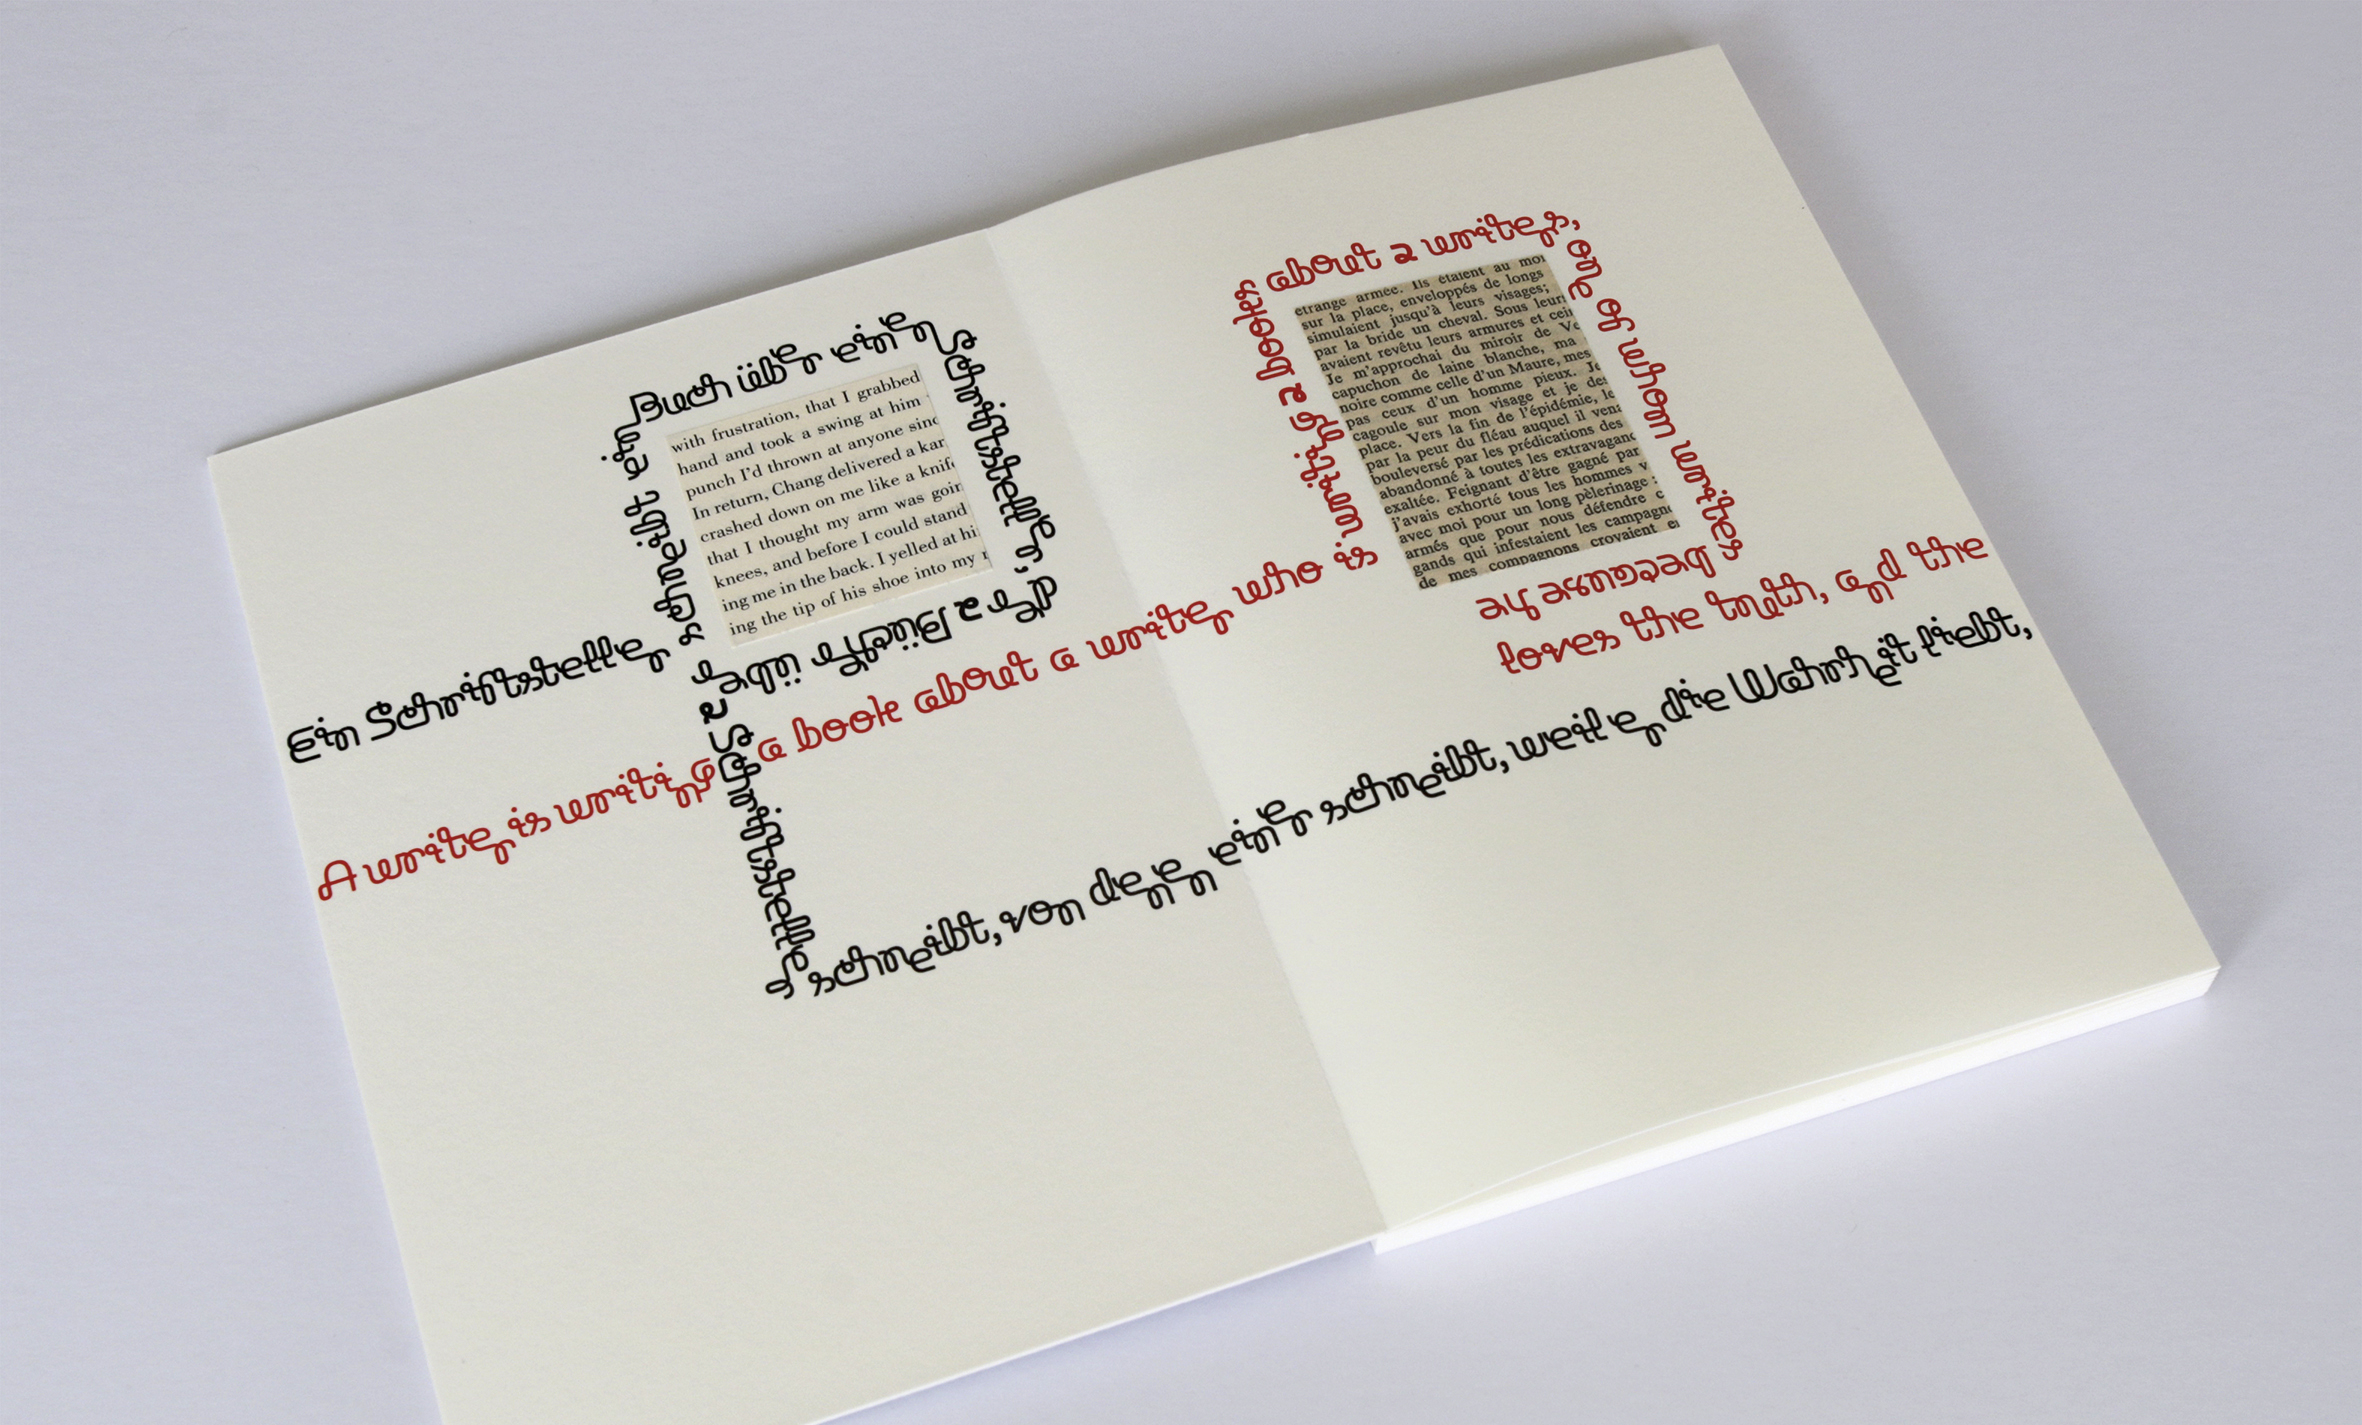 Ein Schriftsteller
schreibt ein
Buch über einen
Schriftsteller,
der 2 Bücher über
2 Schriftsteller
schreibt, von denen einer schreibt, weil er die Wahrheit liebt,
with frustration, that I grabbed
hand and took a swing at him
punch I'd thrown at anyone sinc
In return, Chang delivered a kar
crashed down on me like a knif
that I thought my arm was goin
knees, and before I could stand
ing me in the back. I yelled at hi
ing the tip of his shoe into my
A writer is writing a book about a writer who is
writing 2 books
about 2 writers,
one of whom writes
because he
loves the truth, and the
etrange armée. Ils étaient au moi
sur la place, enveloppés de longs
simulaient jusqu'à leurs visages;
par la bride un cheval. Sous leurs
avaient revêtu leurs armures et cein
Je m'approchai du miroir de Ve
capuchon de laine blanche, ma
noire comme celle d'un Maure, mes
pas ceux d'un homme pieux. Je
cagoule sur mon visage et je des
place. Vers la fin de l'épidémie, le
par la peur du fléau auquel il vena
bouleversé par les prédications des
abandonné à toutes les extravaganc
exaltée. Feignant d'être gagné par
j'avais exhorté tous les hommes v
avec moi pour un long pèlerinage :
armés que pour nous défendre c
gands qui infestaient les campagne
de mes compagnons croyaient e